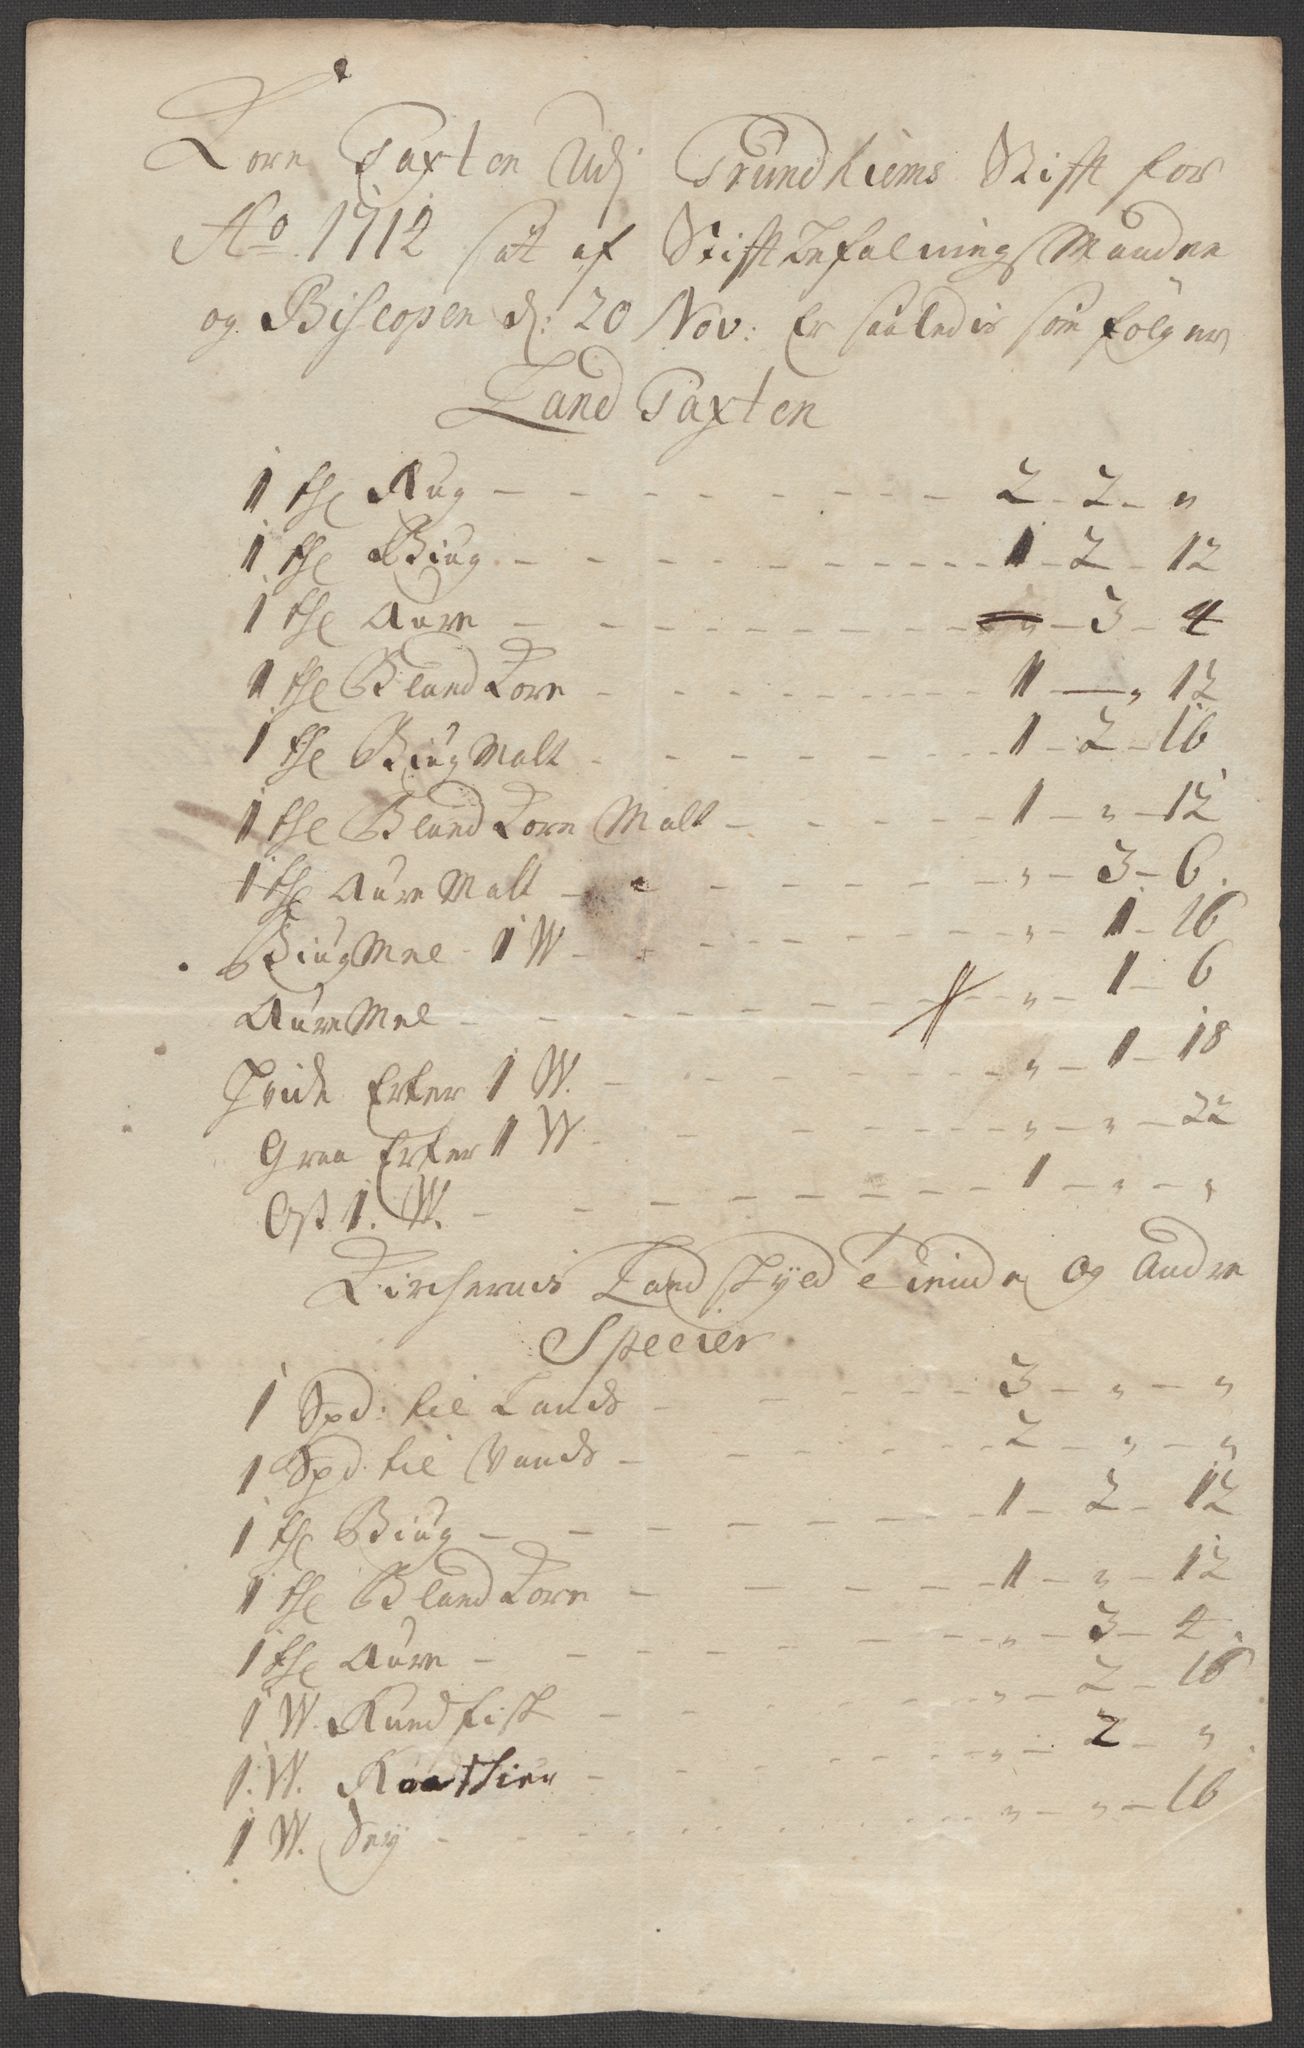 Korn Taxten Udj Trundhiems Stifft for
Ao. 1712 sat af Stifftbefalnings Manden
og Biscopen d: 20 Nov: Er saaledis som følger
Land Taxten
1 the Rug - - - - - - - - 2 - 2 - "
1 the Biug - - - - - - - - 1 - 2 - 12
1 the Aure - - - - - - - - " - 3 - 4
1 the Bland Korn - - - - - - 1 - " 12
1 the Biug Malt - - - - - - 1 - 2 - 16
1 the Bland Korn Malt - - - - - 1 - " - 12
1 the Aure Malt - - - - - - - " - 3 - 6.
Biug Meel - 1 W - - - - - - " - 1 - 16
Aure Meel - - - - - - - - " - 1 - 6
Hvide Erter 1 W. - - - - - - " - 1 - 18
Graa Erter 1 W - - - - - - " - " - 22
Ost 1. W. - - - - - - - - 1 - " - "
Kirchernis Land skyld Tiende og Andre
Specier
1 Spd: til Lands - - - - - 3 - " - "
1 Spd. til Vands - - - - - 2 - " - "
1 the Biug - - - - - - - 1 - 2 - 12
1 the Bland Korn - - - - - 1 - " - 12
1 the Aure - - - - - - - " - 3 - 4.
1 W. Rundfisk - - - - - - " - 2 - 16
1. W. Rodskier - - - - - - " - 2 - ".
1 W. Sey - - - - - - - " - " - 16